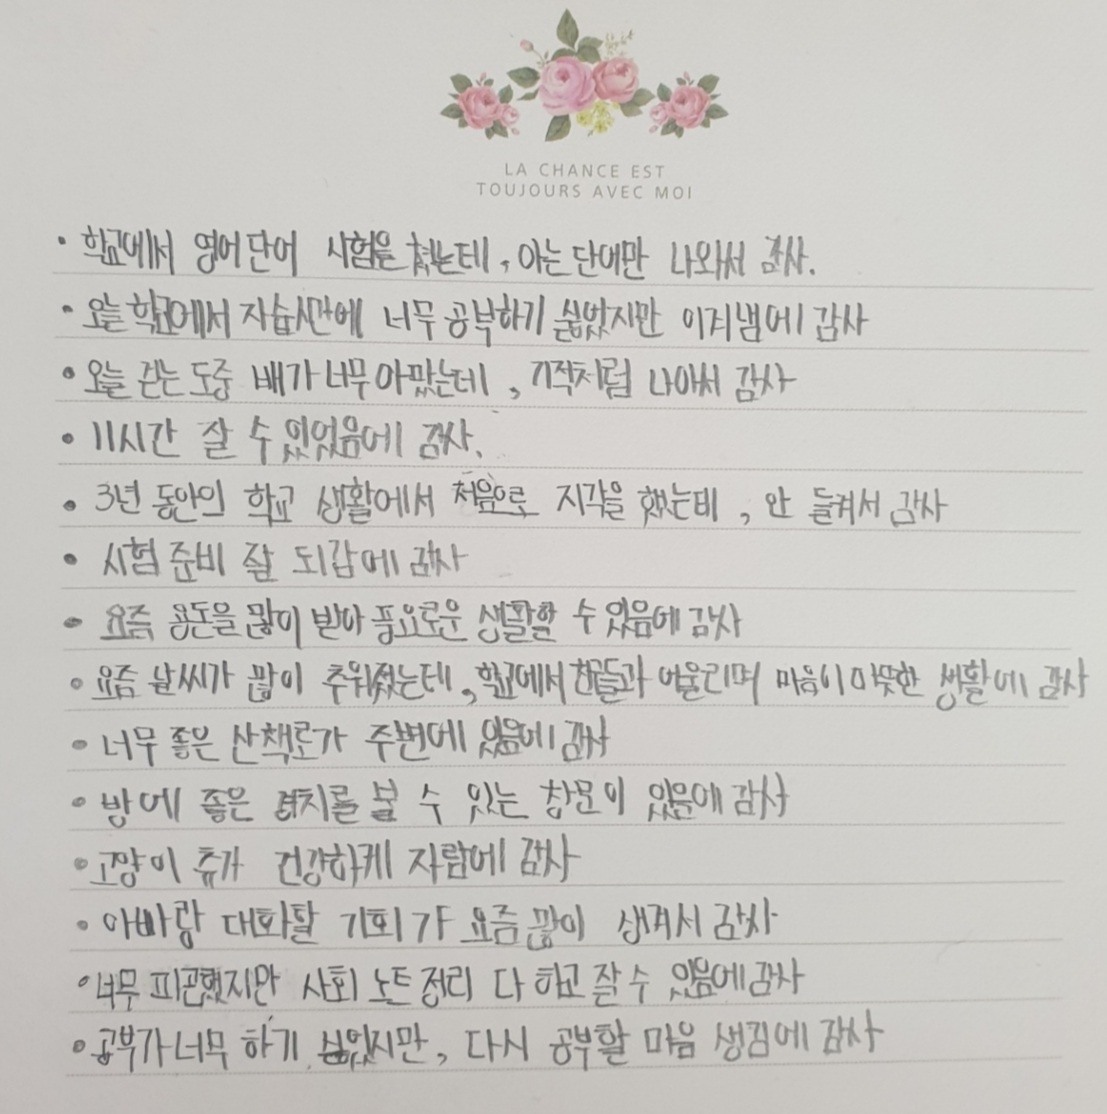 LA CHANCE EST
TOUJOURS AVEC MOI
• 학교에서 영어단어 시험을 쳤는데, 아는 단어만 나와서 감사.
• 오늘 학교에서 자습시간에 너무 공부하기 싫었지만 이겨냄에 감사
• 오늘 걷는 도중 배가 너무 아팠는데, 기적처럼 나아서 감사
• 11시간 잘 수 있었음에 감사.
• 3년 동안의 학교 생활에서 처음으로 지각을 했는데, 안 들켜서 감사
• 시험 준비 잘 되감에 감사
• 요즘 용돈을 많이 받아 풍요로운 생활할 수 있음에 감사
• 요즘 날씨가 많이 추워졌는데, 학교에서 친구들과 어울리며 마음이 따뜻한 생활에 감사
• 너무 좋은 산책로가 주변에 있음에 감사
• 방에 좋은 경치를 볼 수 있는 창문이 있음에 감사
• 고양이 휴가 건강하게 자람에 감사
• 아빠랑 대화할 기회가 요즘 많이 생겨서 감사
• 너무 피곤했지만 사회 노트정리 다 하고 잘 수 있음에 감사
• 공부가 너무 하기 싫었지만, 다시 공부할 마음 생김에 감사